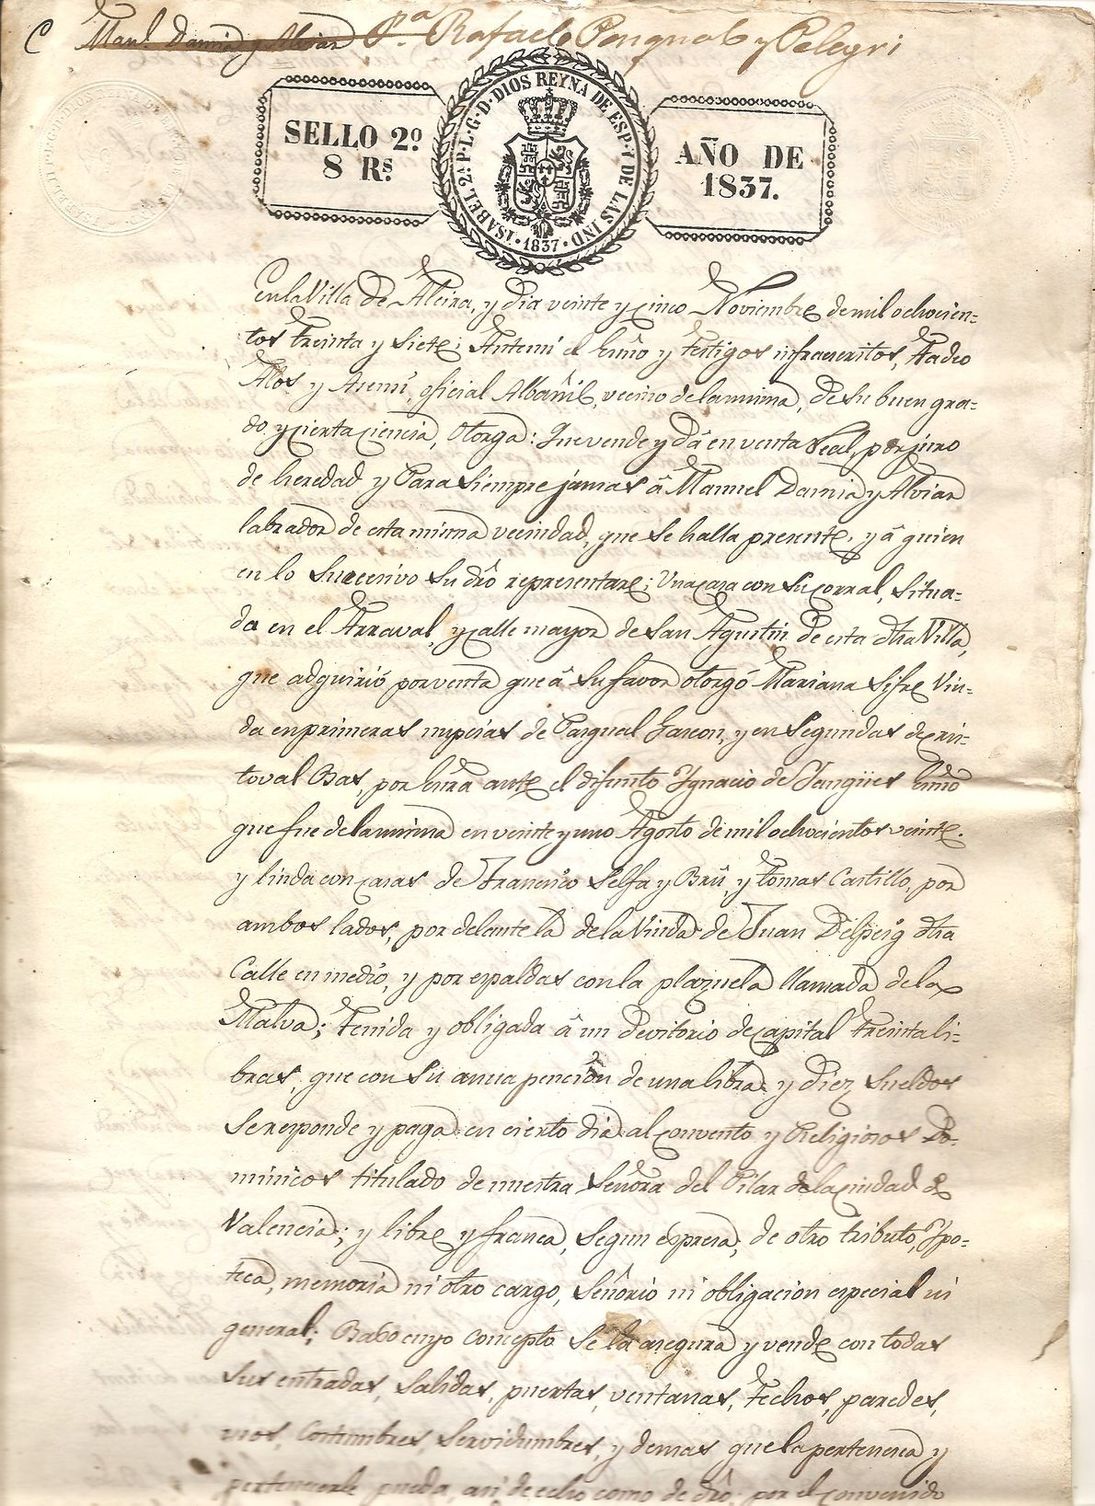 C Man.l Damia y Alviar P.a Rafael Pasqual y Pelegri
SELLO 2º.
8 Rs.
ISABEL 2ª. P. L. G. D. DIOS REYNA DE ESP. Y DE LAS IND
1837
AÑO DE
1837.
En la Villa de Alcira, y dia veinte y cinco Noviembre de mil ochocien-
tos treinta y siete: Antemi el Esño y testigos infraescritos, Tadeo
Alos y Asensi, oficial Albañil, vecino de la misma, de su buen gra-
do y cierta ciencia, Otorga: Que vende y dá en venta Real, por juro
de heredad y para siempre jamas â Manuel Damia y Alviar
labrador de esta misma vecindad, que se halla presente, y â quien
en lo succesivo su dro representare; Una casa con su corral, situa-
da en el Arraval, y calle mayor de San Agustin de esta dha Villa,
que adquirió por venta que â su favor otorgó Mariana Sifre Viu-
da en primeras nupcias de Pasqual Garcon, y en segundas de Cris-
toval Bas, por Esra ante el difunto Ygnacio de Sangües Esño
que fue de la misma en veinte y uno Agosto de mil ochocientos veinte.
y linda con casas de Francisco Selfa y Brú, y Tomas Castillo, por
ambos lados, por delante la de la Viuda de Juan Delpeig dha
Calle en medio, y por espaldas con la plazuela llamada de la
Malva; tenida y obligada â un Devitorio de capital treinta li-
bras, que con su anua penciôn de una libra y diez sueldos
se responde y paga en cierto dia al convento y Religiosos Do-
minicos titulado de nuestra Señora del Pilar de la ciudad de
Valencia; y libre y franca, segun espresa, de otro tributo, Ypo-
teca, memoria ni otro cargo, Señorio ni obligacion especial ni
general; Baxo cuyo concepto se la asegura y vende con todas
sus entradas, salidas, puertas, ventanas, techos, paredes,
usos, costumbres, servidumbres, y demas que la pertenesca y
pertenecerle pueda, asi de echo como de dro; por el convenido